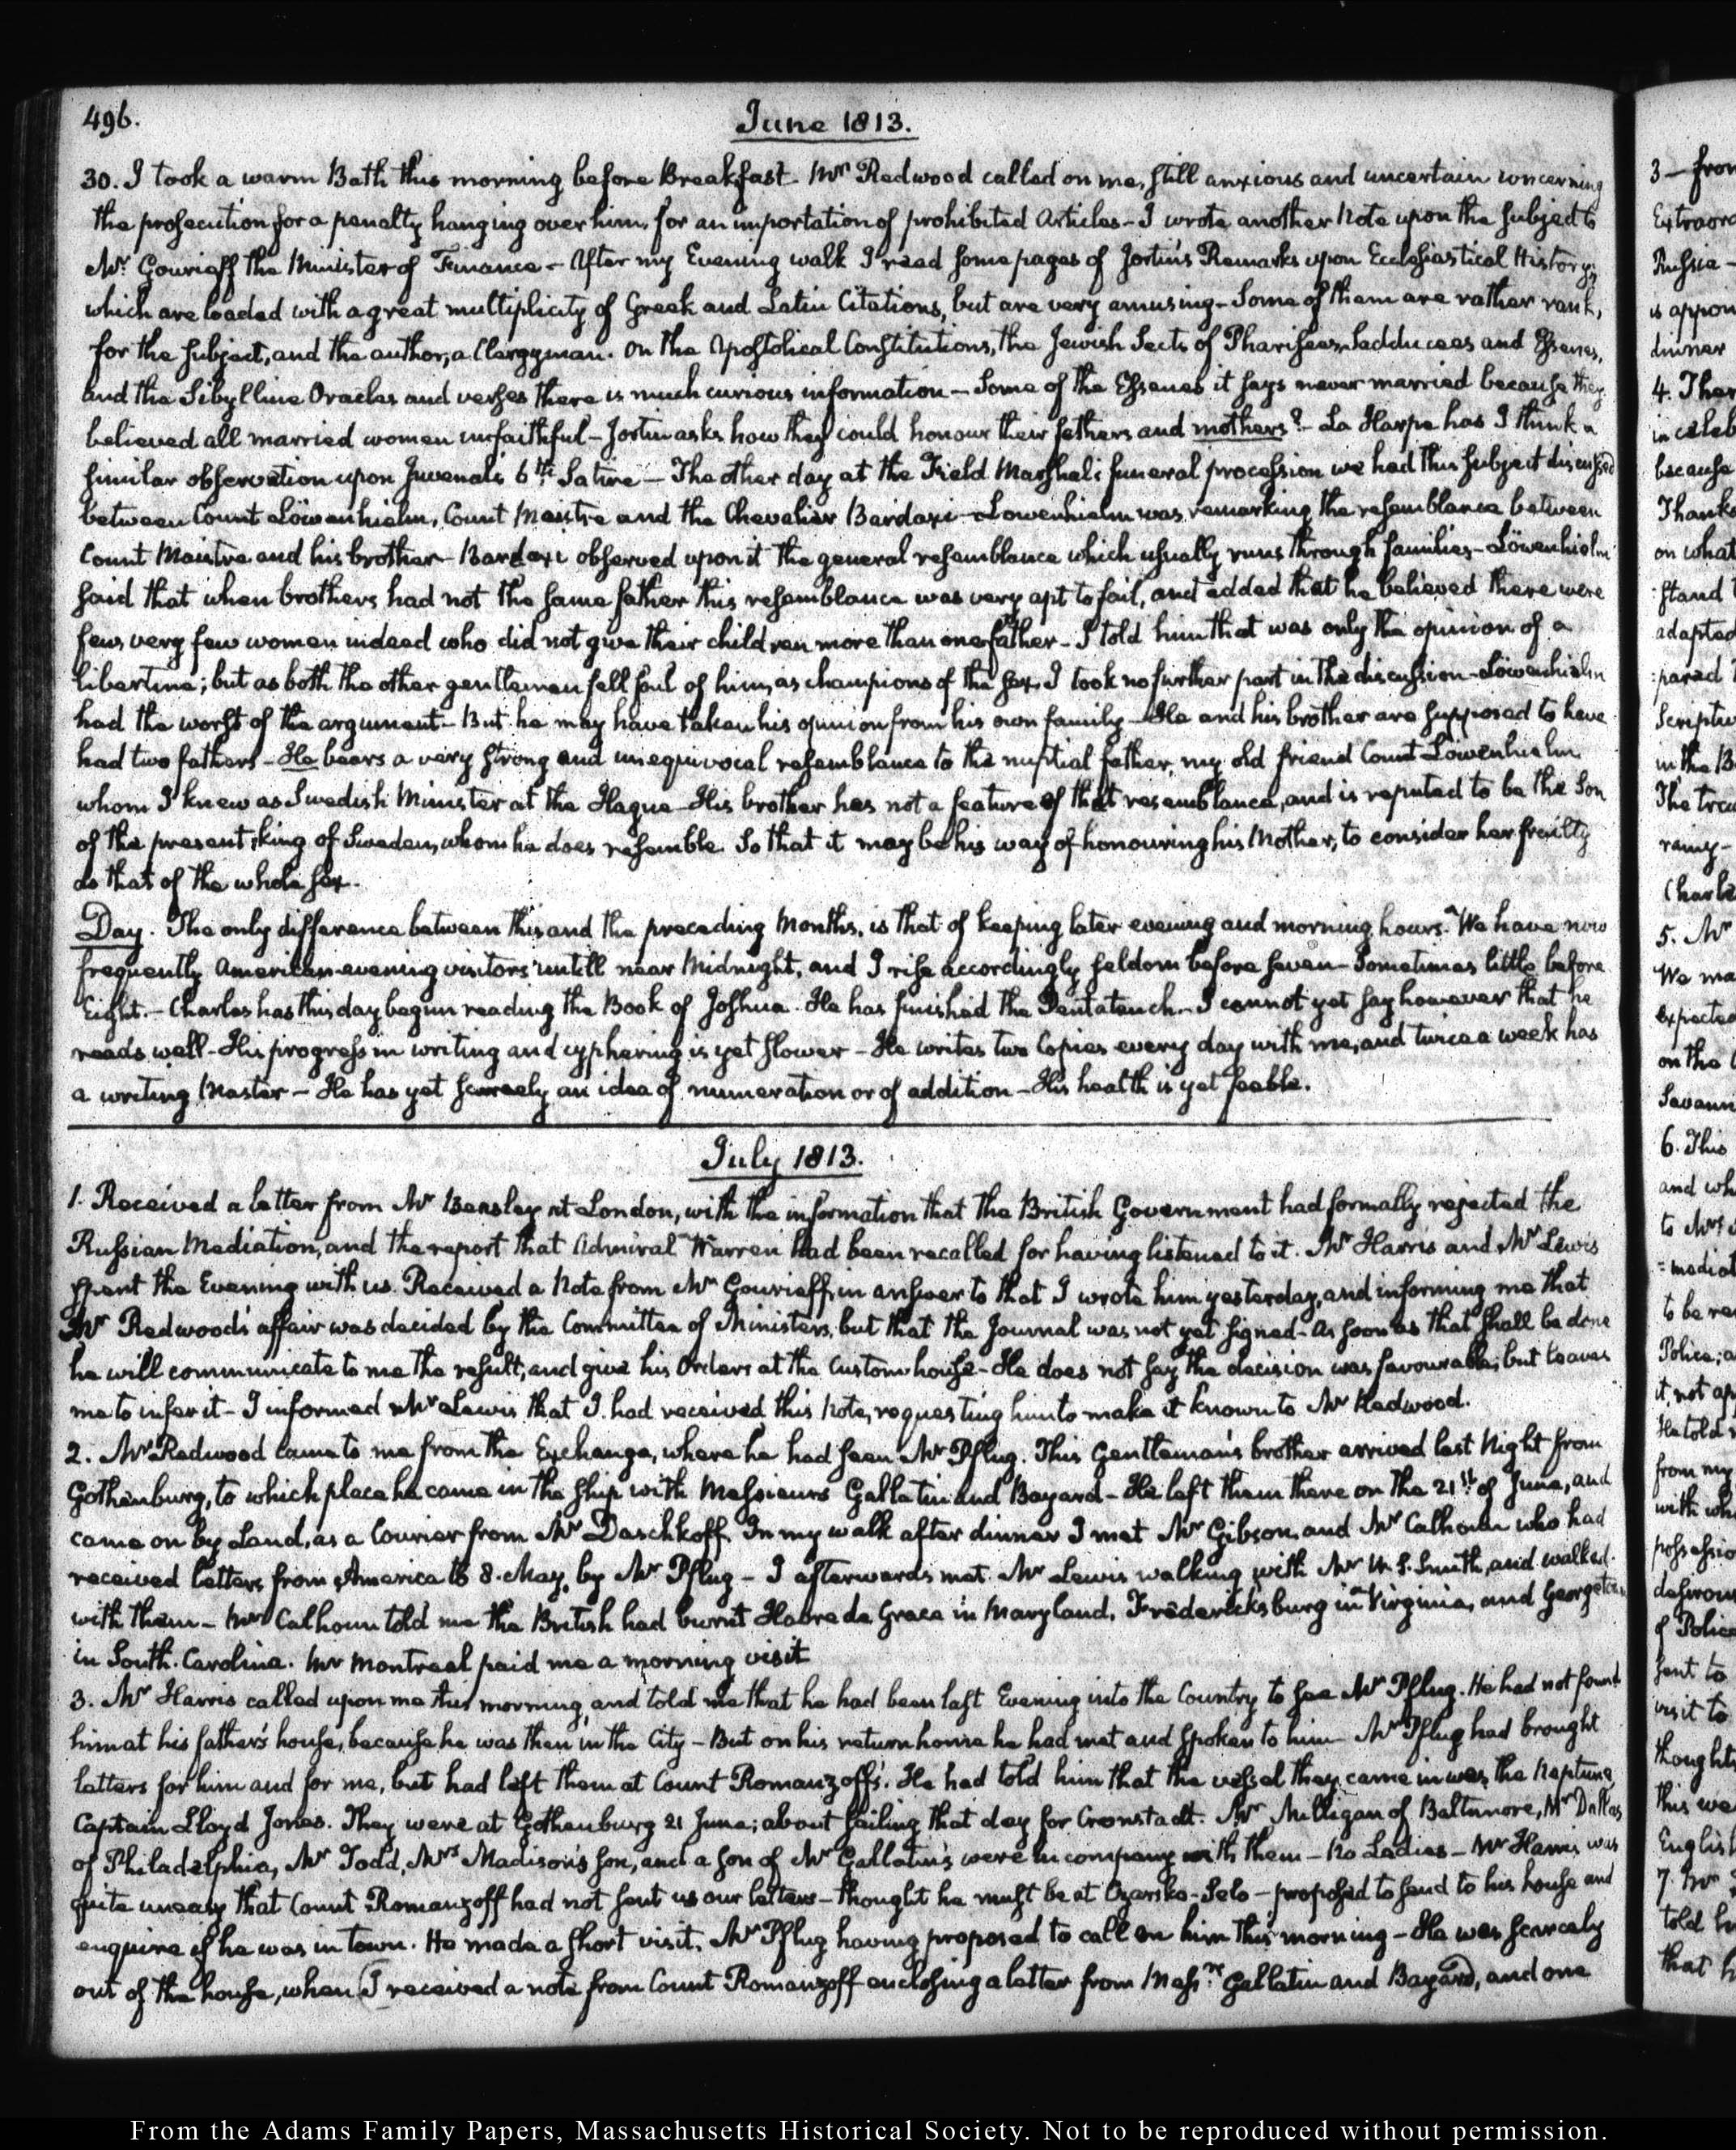 496.
June 1813.
30. I took a warm Bath this morning before Breakfast. Mr Redwood called on me, still anxious and uncertain concerning
the prosecution for a penalty hanging over him, for an importation of prohibited Articles – I wrote another Note upon the subject to
Mr Gourieff the Minister of Finance – After my Evening walk I read some pages of Jortin's Remarks upon Ecclesiastical History;
which are loaded with a great multiplicity of Greek and Latin Citations, but are very amusing – Some of them are rather rank,
for the subject, and the author, a Clergyman. On the Apostolical Constitutions, the Jewish Sects of Pharisees, Sadducees and Essenes,
and the Sibylline Oracles and verses there is much curious information – Some of the Essenes it says never married because they
believed all married women unfaithful – Jortin asks how they could honour their fathers and mothers? – La Harpe has I think a
similar observation upon Juvenal's 6th Satire – The other day at the Field Marshal's funeral procession we had this subject discussed
between Count Löwenhielm, Count Maistre and the Chevalier Bardaxi – Lowenhielm was remarking the resemblance between
Count Maistre and his brother – Bardaxi observed upon it the general resemblance which usually runs through families – Löwenhielm
said that when brothers had not the same father this resemblance was very apt to fail, and added that he believed there were
few, very few women indeed who did not give their children more than one father – I told him that was only the opinion of a
libertine; but as both the other gentlemen fell foul of him, as champions of the sex, I took no further part in the discussion – Löwenhielm
had the worst of the argument – But he may have taken his opinion from his own family – He and his brother are supposed to have
had two fathers – He bears a very strong and unequivocal resemblance to the nuptial father, my old friend Count Löwenhielm
whom I knew as Swedish Minister at the Hague – His brother has not a feature of that resemblance, and is reputed to be the Son
of the present king of Sweden, whom he does resemble. So that it may be his way of honouring his Mother, to consider her frailty
as that of the whole sex.
Day. The only difference between this and the preceding Months, is that of keeping later evening and morning hours. We have now
frequently American evening visitors untill near Midnight, and I rise accordingly seldom before seven – Sometimes little before
Eight. – Charles has this day begun reading the Book of Joshua. He has finished the Pentateuch. – I cannot yet say however that he
reads well – His progress in writing and cyphering is yet slower – He writes two Copies every day with me, and twice a week has
a writing Master – He has yet scarcely an idea of numeration or of addition – His health is yet feeble.
July 1813.
1. Received a letter from Mr Beasley at London, with the information that the British Government had formally rejected the
Russian Mediation, and the report that Admiral Warren had been recalled for having listened to it. Mr Harris and Mr Lewis
spent the Evening with us. Received a Note from Mr Gourieff, in answer to that I wrote him yesterday, and informing me that
Mr Redwood's affair was decided by the Committee of Ministers, but that the Journal was not yet signed – As soon as that shall be done
he will communicate to me the result, and give his Orders at the Custom house – He does not say the decision was favourable; but leaves
me to infer it – I informed Mr Lewis that I had received this Note, requesting him to make it known to Mr Redwood.
2. Mr Redwood came to me from the Exchange, where he had seen Mr Pflug. This Gentleman's brother arrived last Night from
Gothenburg, to which place he came in the ship with Messieurs Gallatin and Bayard – He left them there on the 21st of June, and
came on by Land, as a Courier from Mr Daschkoff. In my walk after dinner I met Mr Gibson, and Mr Calhoun who had
received letters from America to 8. May, by Mr Pflug – I afterwards met Mr Lewis walking with Mr W. S. Smith, and walked
with them – Mr Calhoun told me the British had burnt Havre de Grace in Maryland, Fredericksburg in Virginia, and Georgetown
in South. Carolina. Mr Montreal paid me a morning visit
3. Mr Harris called upon me this morning, and told me that he had been last Evening into the Country to see Mr Pflug. He had not found
him at his father's house, because he was then in the City – But on his return home he had met and spoken to him – Mr Pflug had brought
letters for him and for me, but had left them at Count Romanzoff's. He had told him that the vessel they came in was the Neptune,
Captain Lloyd Jones. They were at Gothenburg 21 June; about sailing that day for Cronstadt. Mr Milligan of Baltimore, Mr Dallas
of Philadelphia, Mr Todd, Mrs Madison's son, and a son of Mr Gallatin's were in company with them – No Ladies – Mr Harris was
quite uneasy that Count Romanzoff had not sent us our letters – thought he must be at Czarsko-Selo – proposed to send to his house and
enquire if he was in town. He made a short visit, Mr Pflug having proposed to call on him this morning – He was scarcely
out of the house, when I received a note from Count Romanzoff enclosing a letter from Messrs Gallatin and Bayard, and one
3 – from
Russia –
dinner
4. Ther
because
Thanks
on what
stand
adapted
in the B
rainy –
Charles
5. Mr
We
expected
on the
Savann
6. This
and
to Mrs
to be
Police;
it, not
He told
from my
with
of Police
sent to
visit to
thoughts
this
English
7. Mr
told
that
From the Adams Family Papers, Massachusetts Historical Society. Not to be reproduced without permission.